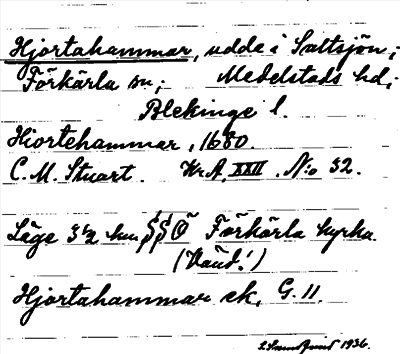 Hjortahammar, udde i Saltsjön;
Förkärla sn; Medelstads hd;
Blekinge l.
Hiortehammar, 1680.
C. M. Stuart. Kr A, XXII. N:o 32.
Läge 3 1/2 km SSO Förkärla kyrka.
(Vänd!)
Hjortahammar ek, G. 11.
1936.